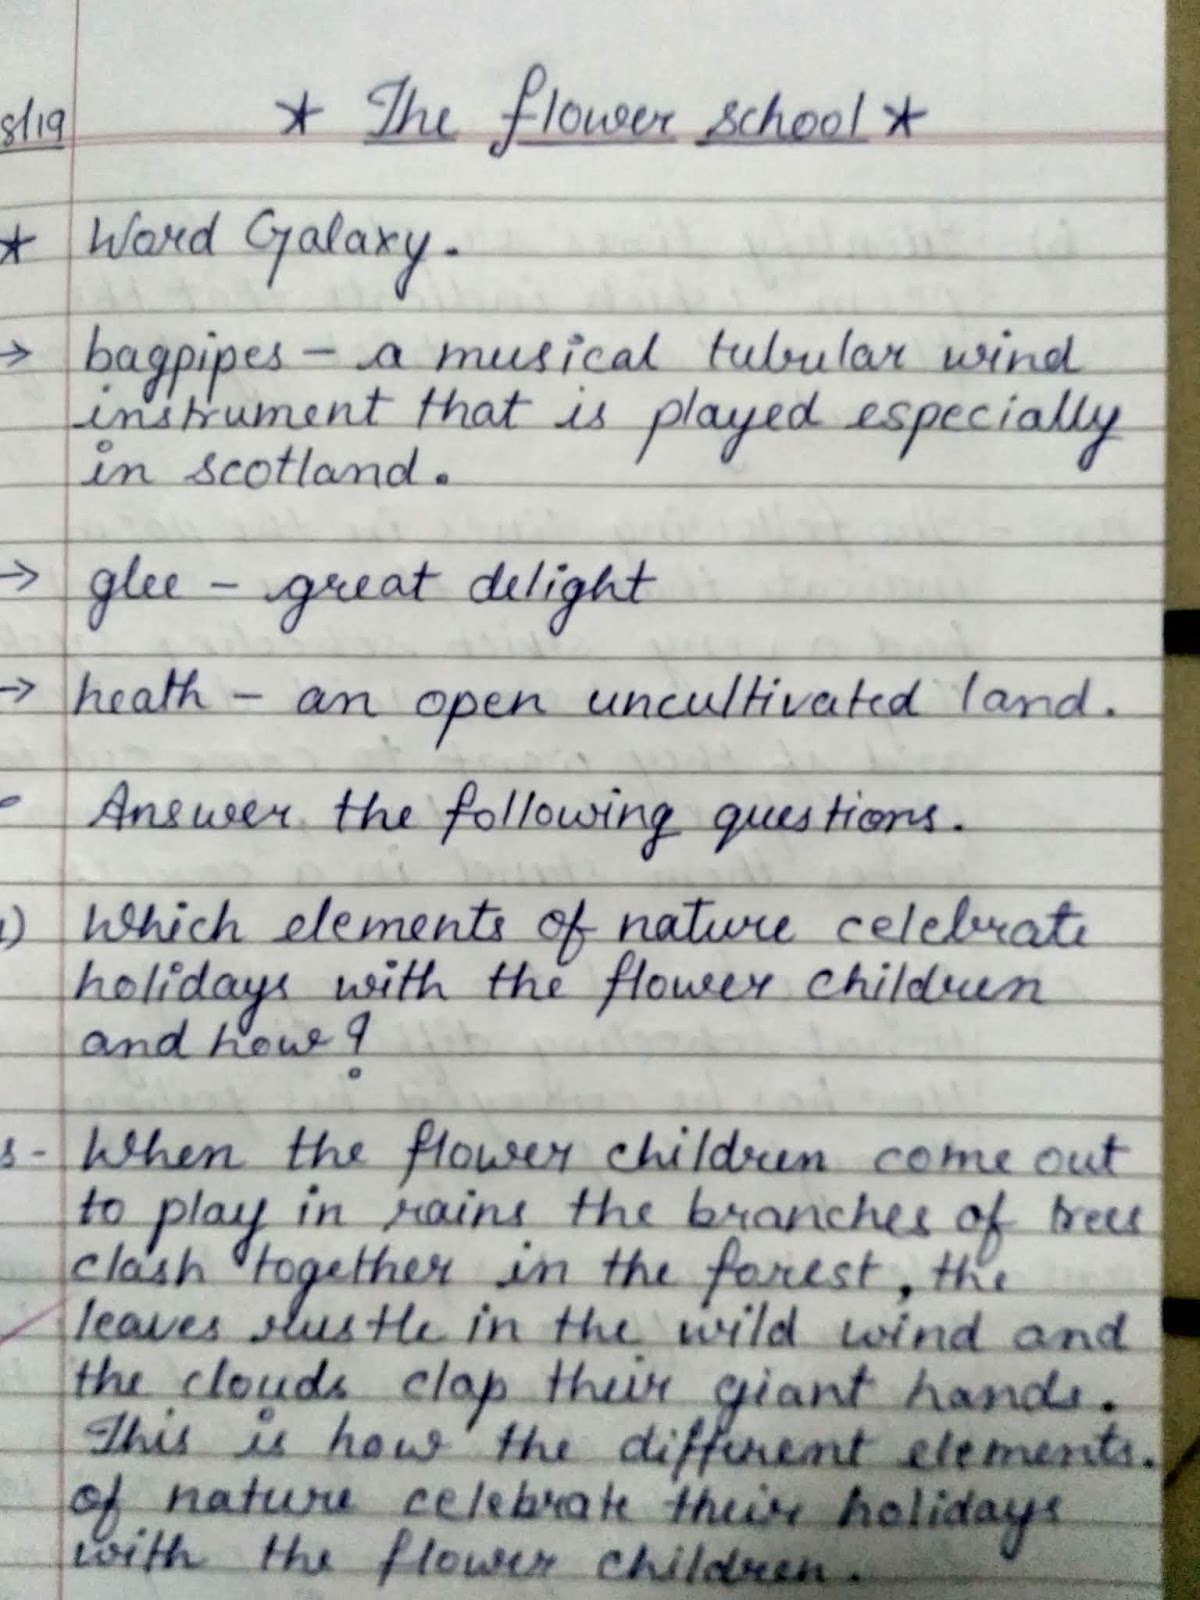 8/19
* The flower school *
* Word Galaxy.
→ bagpipes - a musical tubular wind
instrument that is played especially
in scotland.
→ glee - great delight
→ heath - an open uncultivated land.
- Answer the following questions.
1) Which elements of nature celebrate
holidays with the flower children
and how?
s- When the flower children come out
to play in rains the branches of trees
clash together in the forest, the
leaves rustle in the wild wind and
the clouds clap their giant hands.
This is how the different elements.
of nature celebrate their holidays
with the flower children.